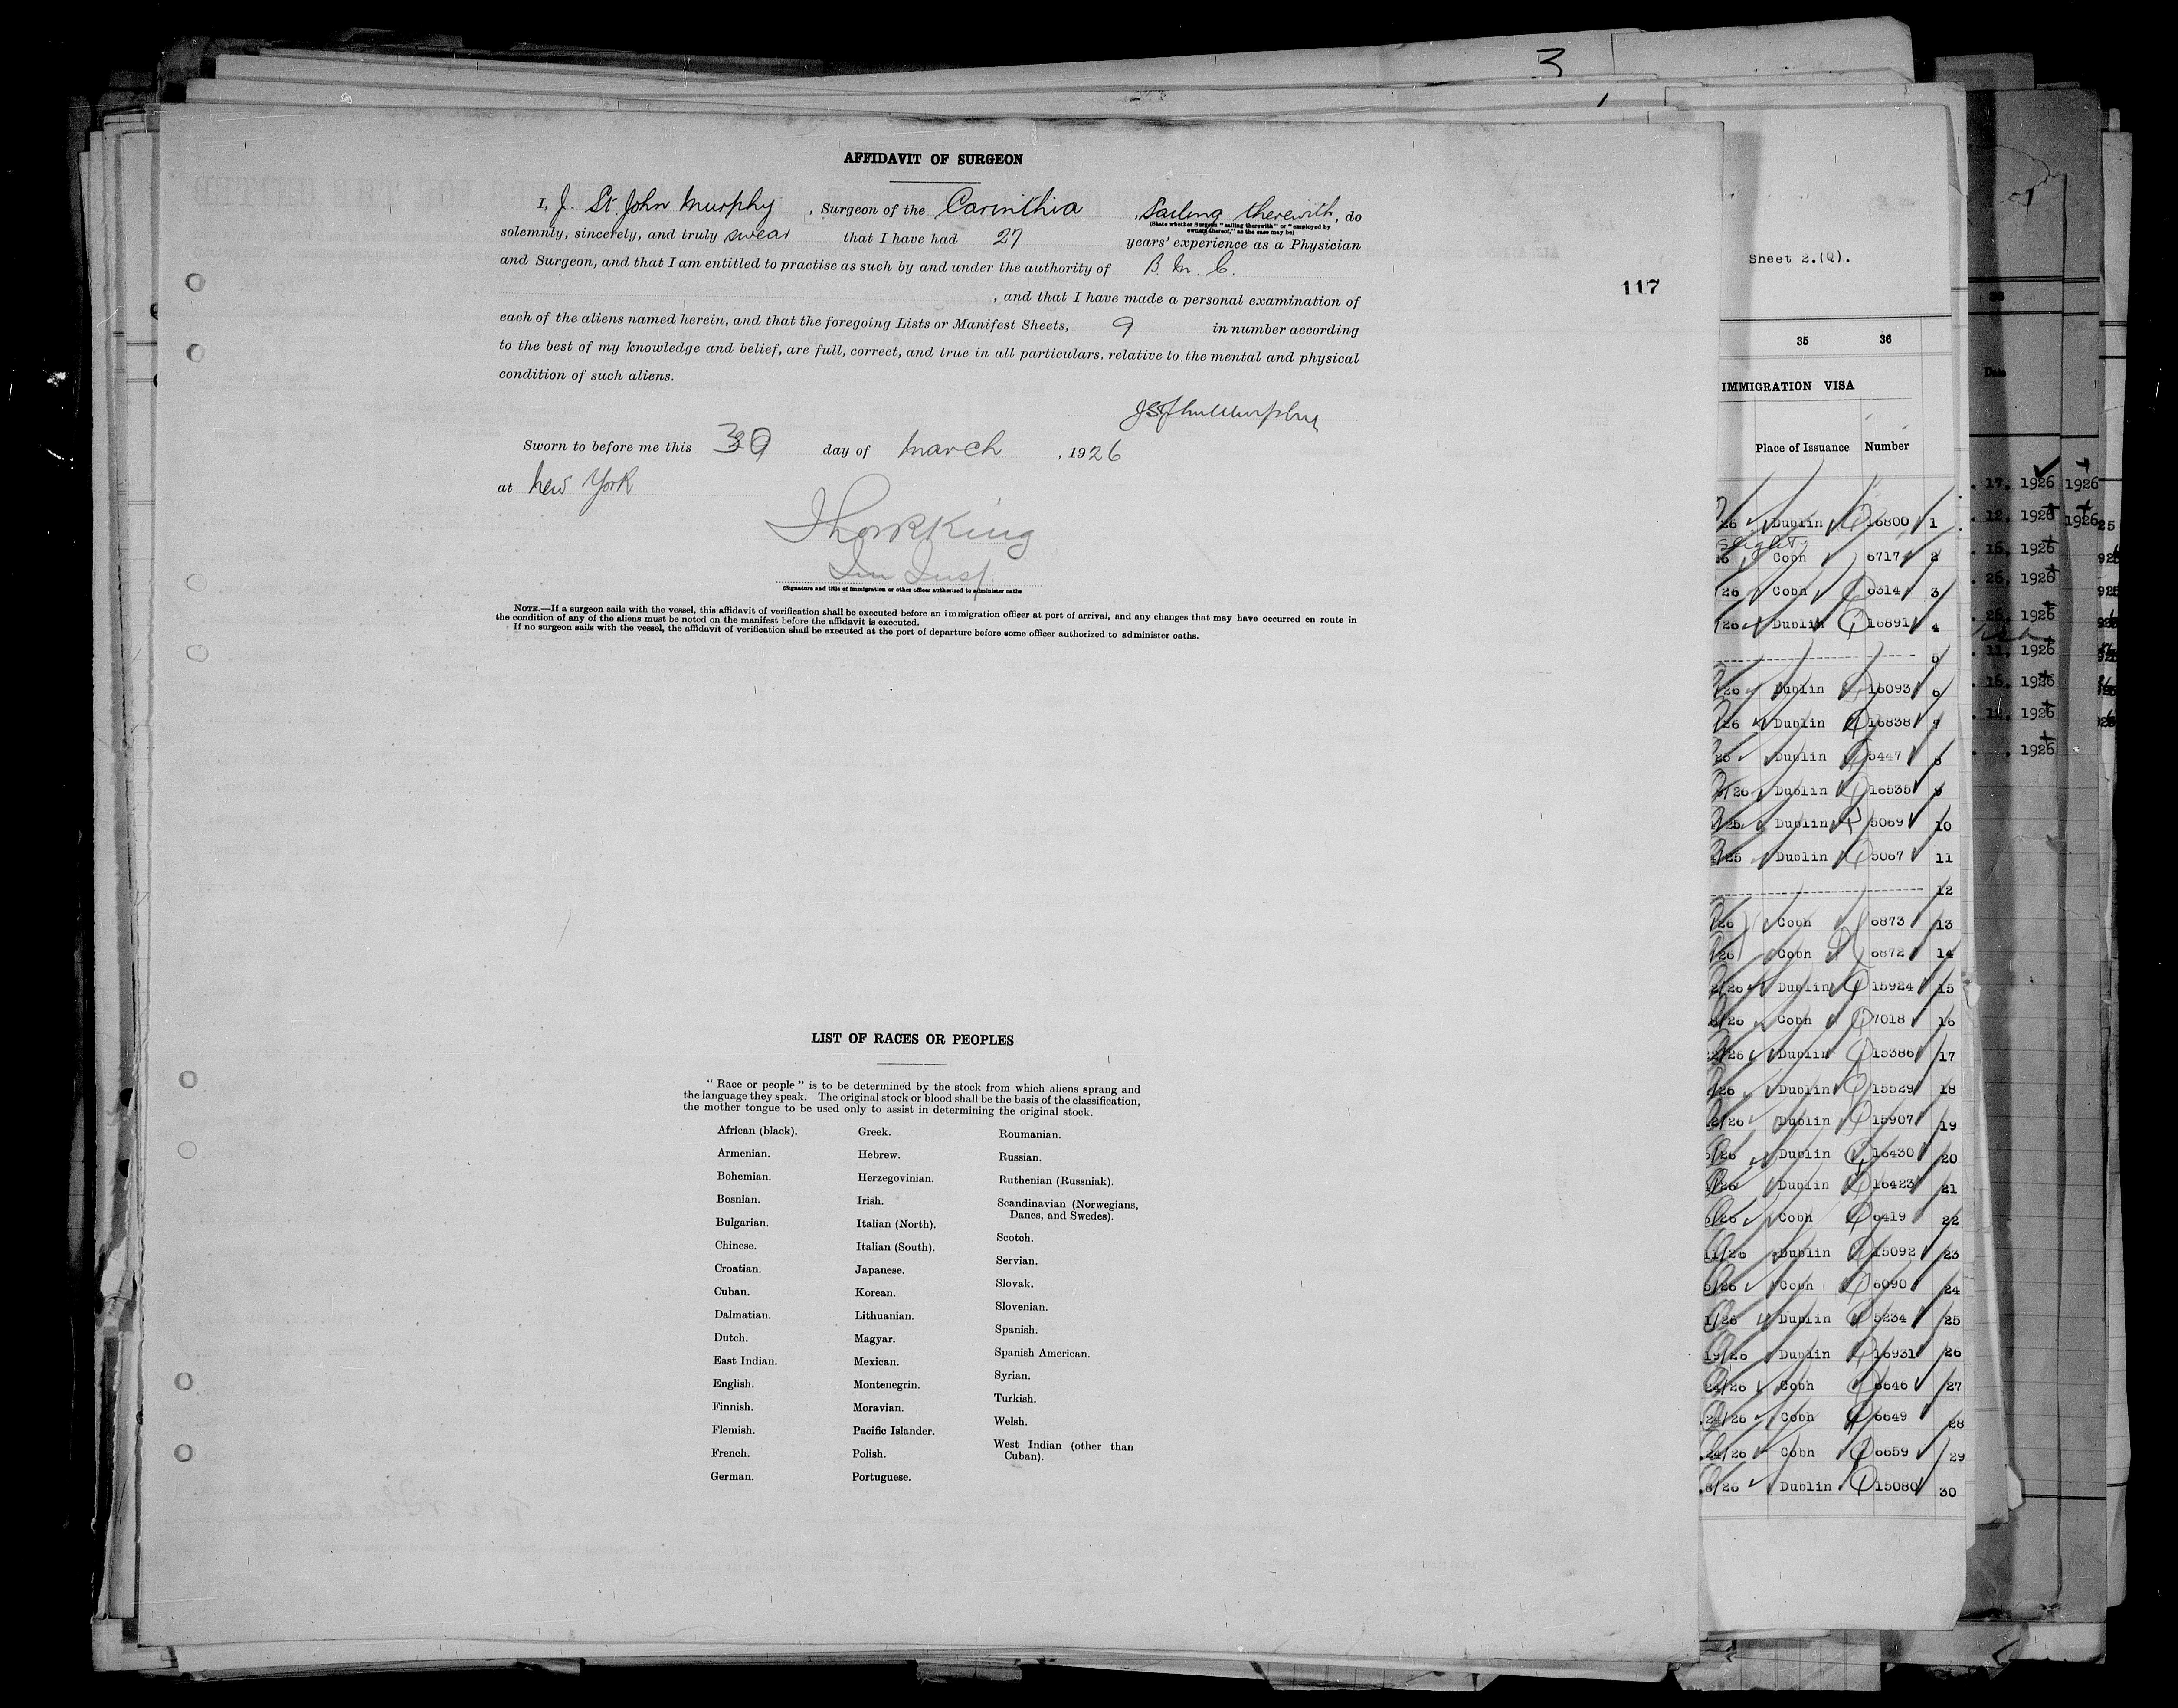 3
AFFIDAVIT OF SURGEON
I, J. St. John Murphy, Surgeon of the Carinthia, Sailing therewith, do
(State whether Surgeon "sailing therewith" or "employed by
owners thereof," as the case may be)
solemnly, sincerely, and truly swear that I have had 27 years' experience as a Physician
and Surgeon, and that I am entitled to practise as such by and under the authority of B. M. C.
, and that I have made a personal examination of
each of the aliens named herein, and that the foregoing Lists or Manifest Sheets, 9 in number according
to the best of my knowledge and belief, are full, correct, and true in all particulars, relative to the mental and physical
condition of such aliens.
117
Sworn to before me this 30 day of March, 1926
at New York
(Signature and title of immigration or other officer authorized to administer oaths
NOTE.—If a surgeon sails with the vessel, this affidavit of verification shall be executed before an immigration officer at port of arrival, and any changes that may have occurred en route in
the condition of any of the aliens must be noted on the manifest before the affidavit is executed.
If no surgeon sails with the vessel, the affidavit of verification shall be executed at the port of departure before some officer authorized to administer oaths.
LIST OF RACES OR PEOPLES
"Race or people" is to be determined by the stock from which aliens sprang and
the language they speak. The original stock or blood shall be the basis of the classification,
the mother tongue to be used only to assist in determining the original stock.
African (black).
Armenian.
Bohemian.
Bosnian.
Bulgarian.
Chinese.
Croatian.
Cuban.
Dalmatian.
Dutch.
East Indian.
English.
Finnish.
Flemish.
French.
German.
Greek.
Hebrew.
Herzegovinian.
Irish.
Italian (North).
Italian (South).
Japanese.
Korean.
Lithuanian.
Magyar.
Mexican.
Montenegrin.
Moravian.
Pacific Islander.
Polish.
Portuguese.
Roumanian.
Russian.
Ruthenian (Russniak).
Scandinavian (Norwegians,
Danes, and Swedes).
Scotch.
Servian.
Slovak.
Slovenian.
Spanish.
Spanish American.
Syrian.
Turkish.
Welsh.
West Indian (other than
Cuban).
Sheet 2.(Q).
35 36
IMMIGRATION VISA
Place of Issuance Number
26 Dublin 16800 1
Cobh 6717 2
/26 Cobh 6314 3
/26 Dublin 16891 4
5
26 Dublin 16093 6
26 Dublin 16838 7
Dublin 5447 8
/26 Dublin 16535 9
/25 Dublin 5069 10
/25 Dublin 5067 11
12
26 Cobh 6873 13
26 Cobh 6872 14
2/26 Dublin 15924 15
/26 Cobh 7018 16
2/26 Dublin 15386 17
/26 Dublin 15529 18
2/26 Dublin 15907 19
/26 Dublin 16430 20
/26 Dublin 16423 21
/26 Cobh 6419 22
11/26 Dublin 15092 23
/26 Cobh 6090 24
1/26 Dublin 5234 25
19/26 Dublin 16931 26
24/26 Cobh 6646 27
24/26 Cobh 6649 28
24/26 Cobh 6659 29
8/26 Dublin 15080 30
Date
17, 1926
12, 1926
16, 1926
26, 1926
26, 1926
11, 1926
16, 1926
1926
1926
1926
1926